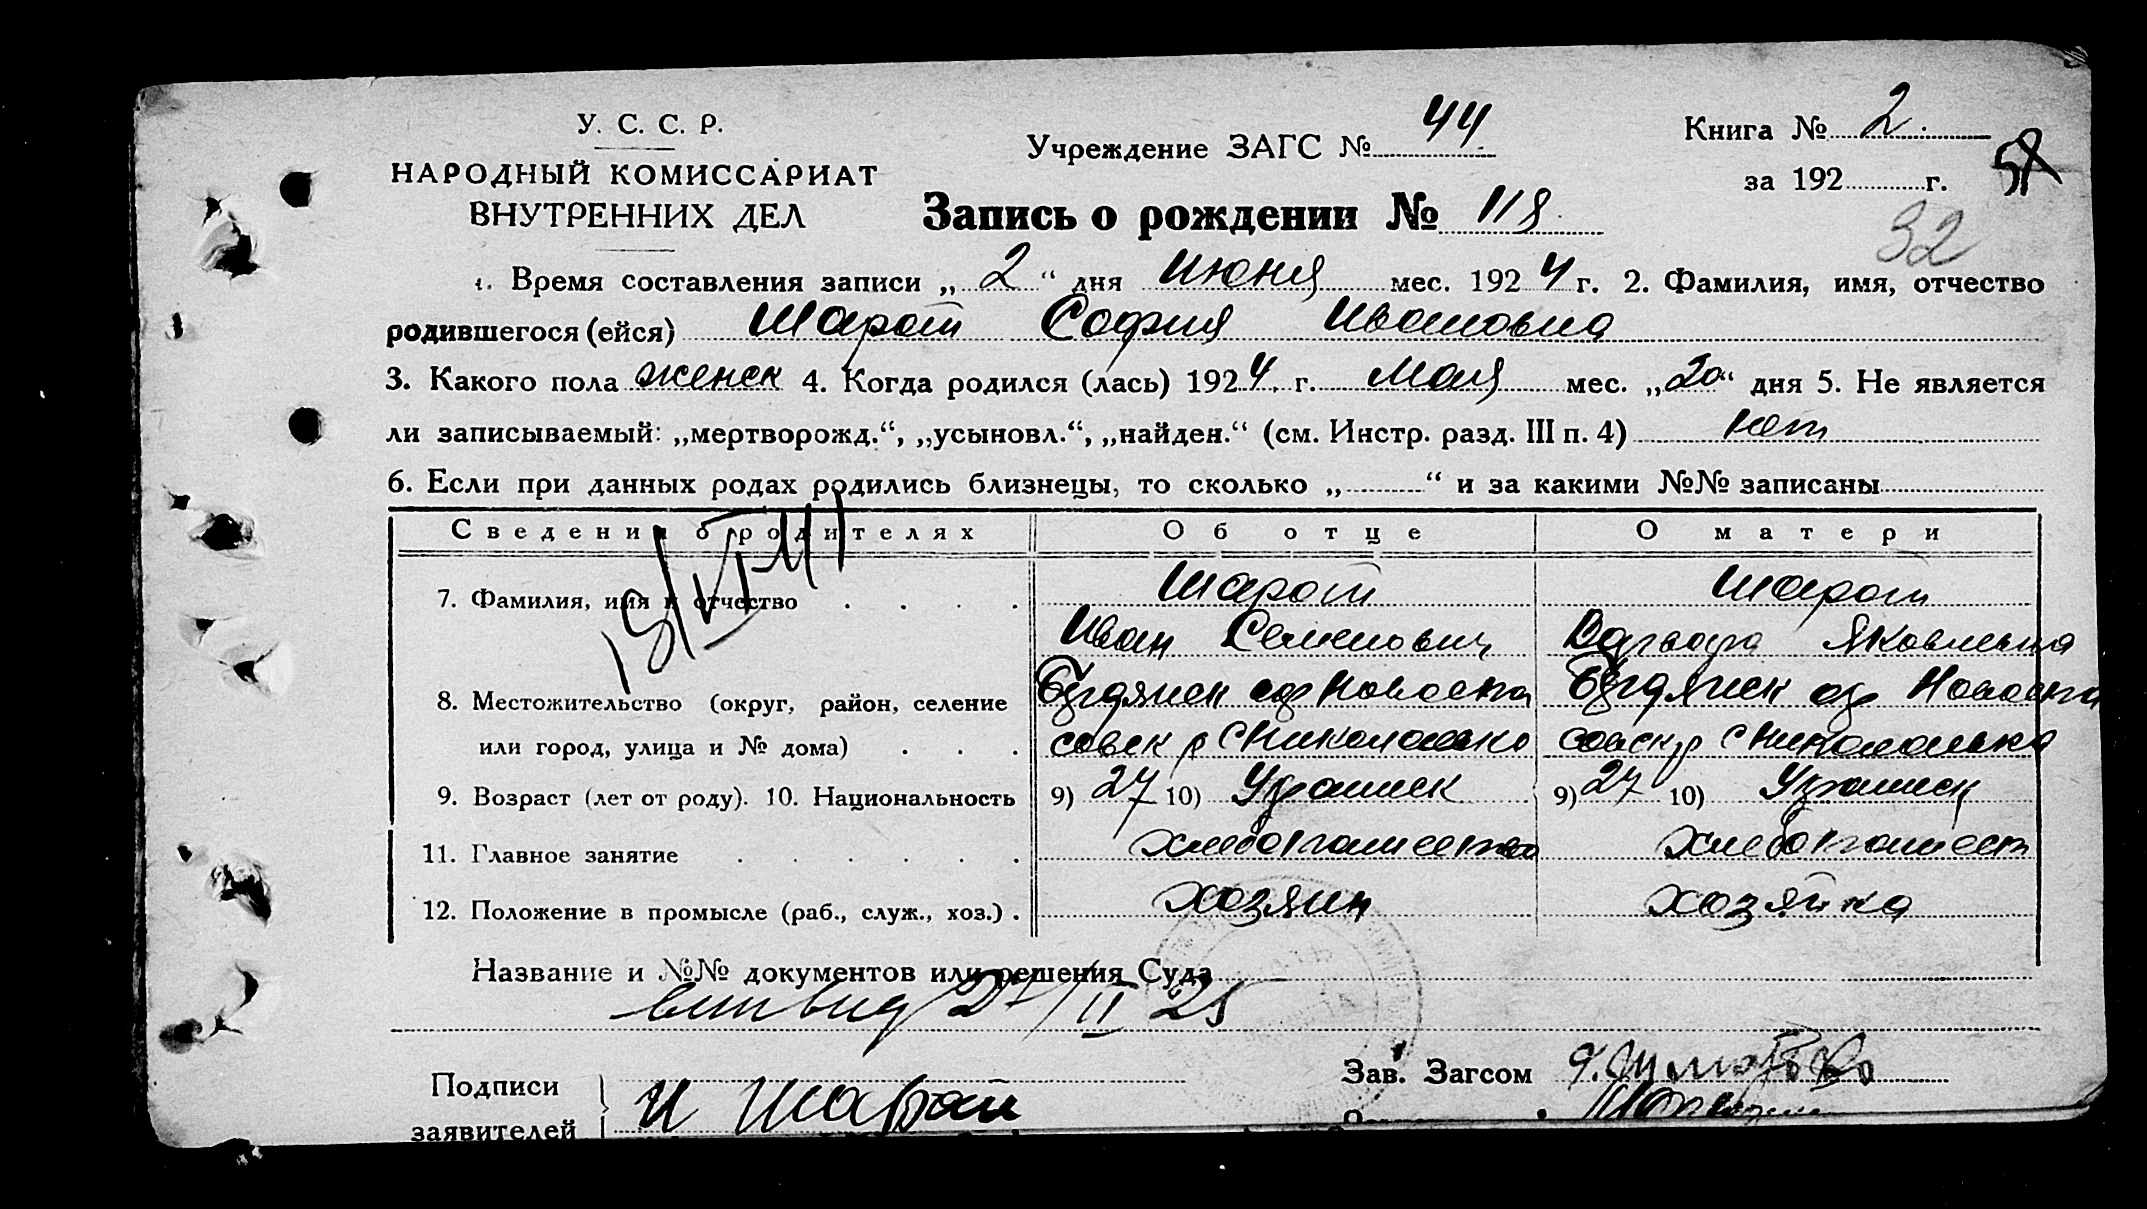 У. С. С. Р.
НАРОДНЫЙ КОМИССАРИАТ
ВНУТРЕННИХ ДЕЛ
Учреждение ЗАГС № 44
Книга № 2
за 192 г.
32
Запись о рождении № 118
1. Время составления записи „ 2 “ дня Июня мес. 1924 г. 2. Фамилия, имя, отчество
родившегося (ейся) Шарат София Ивановна
3. Какого пола женск 4. Когда родился (лась) 1924 г. Мая мес. „20“ дня 5. Не является
ли записываемый: „мертворожд.“, „усыновл.“, „найден.“ (см. Инстр. разд. III п. 4) нет
6. Если при данных родах родились близнецы, то сколько „ “ и за какими №№ записаны
Сведения о родителях Об отце О матери
7. Фамилия, имя и отчество Шарат Шарат
Иван Семенович Варвара Яковлевна
8. Местожительство (округ, район, селение
или город, улица и № дома)
9. Возраст (лет от роду). 10. Национальность 9) 27 10) Украинск 9) 27 10) Украинск
11. Главное занятие хлебопашество хлебопашест
12. Положение в промысле (раб., служ., хоз.) хозяин хозяйка
Название и №№ документов или решения Суда
Подписи
заявителей И Шарат
Зав. Загсом